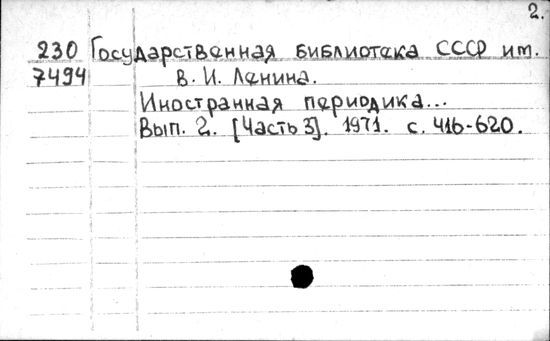 2.
230 Государственная библиотека СССР им.
7494 В. И. Ленина.
Иностранная периодика...
Вып. 2. [Часть 3]. 1971. с. 416-620.